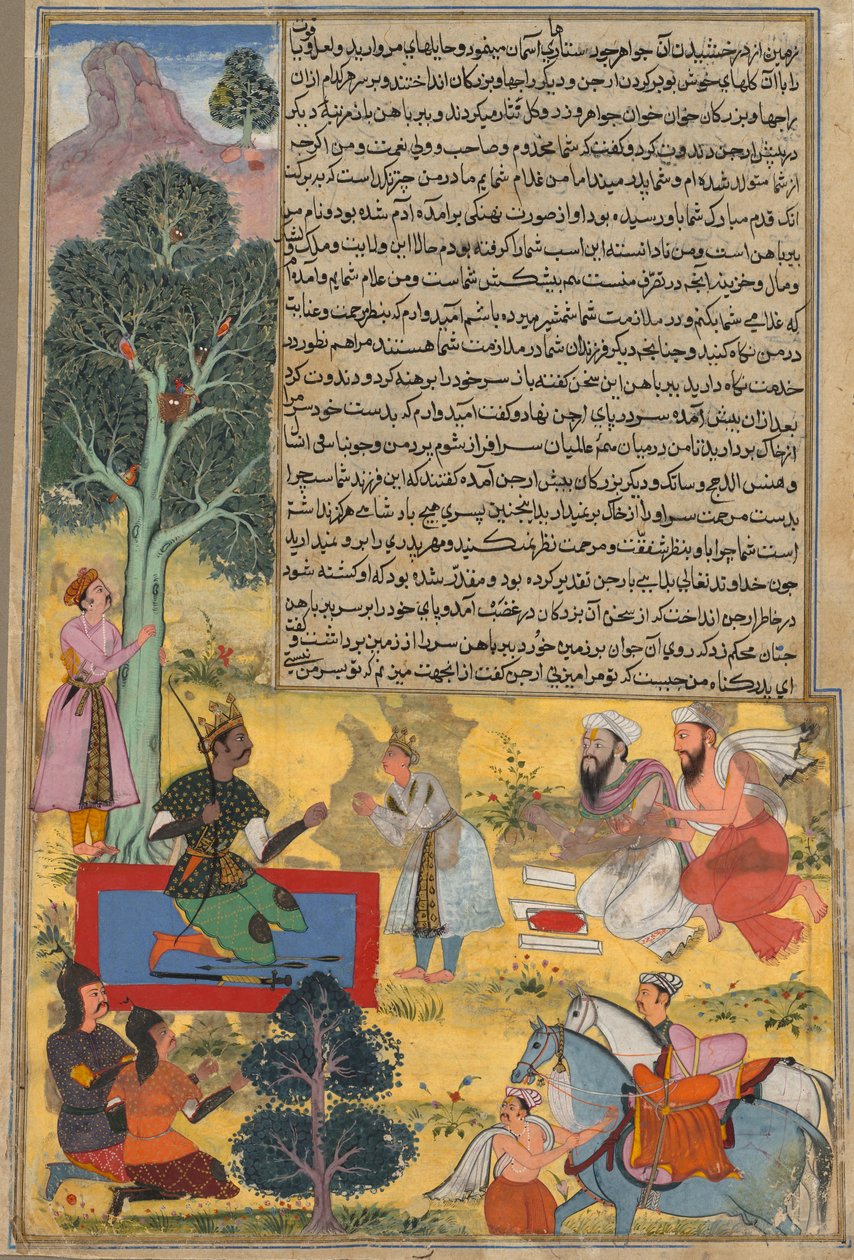 زمین از درخشیدن آن جواهر چون ستارهای آسمان مینمود و حمایلهای مروارید و لعل و یاقوت
را با آن کلهای خوش بو بر کردن ارجن و دیکر راجها و بزرکان انداختند و بر سر هر کدام ازان
راجها و بزرکان خوان خوان جواهر و زر و کل نثار میکردند و ببرباهن باز مرتبه دیکر
در پیش ارجن دندوت کرد و کفت که شما مخدوم و صاحب و ولی نعمت و من اکرچه
از شما متولد شده ام و شما پدر میند اما من غلام شمایم مادر من چترنکدا است که ببرکت
انک قدم مبارک شما باو رسیده بود او از صورت نهنکی برآمده آدم شده بود و نام من
ببرباهن است و من نادانسته این اسب شما را کرفته بودم حالا این ولایت و ملک و لشکر
و مال و خزینه و آنچه در تصرف منست همه پیشکش شماست و من غلام شمایم و آمده ام
که غلامی شما بکنم و در ملازمت شما شمشیر میزده باشم امیدوارم که بنظر مرحمت و عنایت
در من نکاه کنید و چنانچه دیکر فرزندان شما در ملازمت شما هستند مرا هم بطور در
خدمت نکاه دارید ببرباهن این سخن کفته باز سر خود را برهنه کرد و دندوت کرد
بعد ازان پیش آمده سر در پای ارجن نهاد و کفت امیدوارم که بدست خود سر مرا
از خاک بردارید تا من در میان همه عالمیان سرافراز شوم پردمن و جوبناسو در اثنا
و هنس الدج و ساتک و دیکر بزرکان پیش ارجن آمده کفتند که این فرزند شماست چرا
بدست مرحمت سر او را از خاک بر نمیدارید اینچنین پسری هیچ پادشاهی هرکز نداشته
است شما چرا باو بنظر شفقت و مرحمت نظر نمیکنید و مهر پدری را برو نمیدارید
چون خداوند تعالی بلایی بارجن تقدیر کرده بود و مقدر شده بود که او کشته شود
در خاطر ارجن انداخت که از سخن آن بزرکان در غضب آمد و پای خود را بر سر ببرباهن
چنان محکم زد که روی آن جوان بر زمین خورد ببرباهن سر را از زمین برداشت و کفت
ای پدر کناه من چیست که تو مرا میزنی ارجن کفت از انجهت میزنم که تو پسر من نیستی